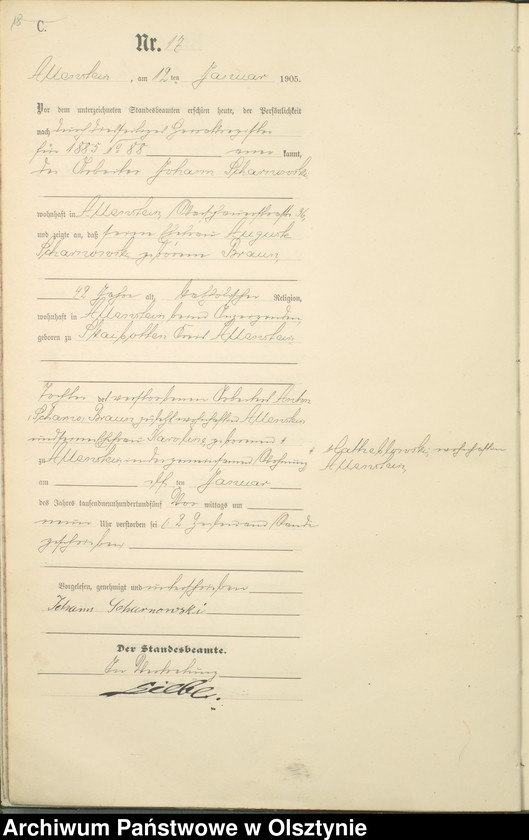 18
C.
Nr. 17
Allenstein, am 12 ten Januar 1905.
Vor dem unterzeichneten Standesbeamten erschien heute, der Persönlichkeit
nach durch
für 1885 № 88 kannt,
der Arbeiter Johann Scharnowski
wohnhaft in Allenstein
und zeigte an, daß seine Ehefrau Auguste
Scharnowski geborene Braun
42 Jahre alt, katholischer Religion,
wohnhaft in Allenstein beim Anzeigenden,
geboren zu Kreis Allenstein
Tochter des verstorbenen Arbeiters Anton
Braun, zuletzt wohnhaft in Allenstein
und seiner Ehefrau Karoline, geborenen +
+ wohnhaft in
Allenstein
zu Allenstein in der gemeinsamen Wohnung
am elf ten Januar
des Jahres tausendneunhundertfünf Vor mittags um
neun Uhr verstorben sei
geschrieben
Vorgelesen, genehmigt und unterschrieben
Johann Scharnowski
Der Standesbeamte.
In Vertretung
Archiwum Państwowe w Olsztynie